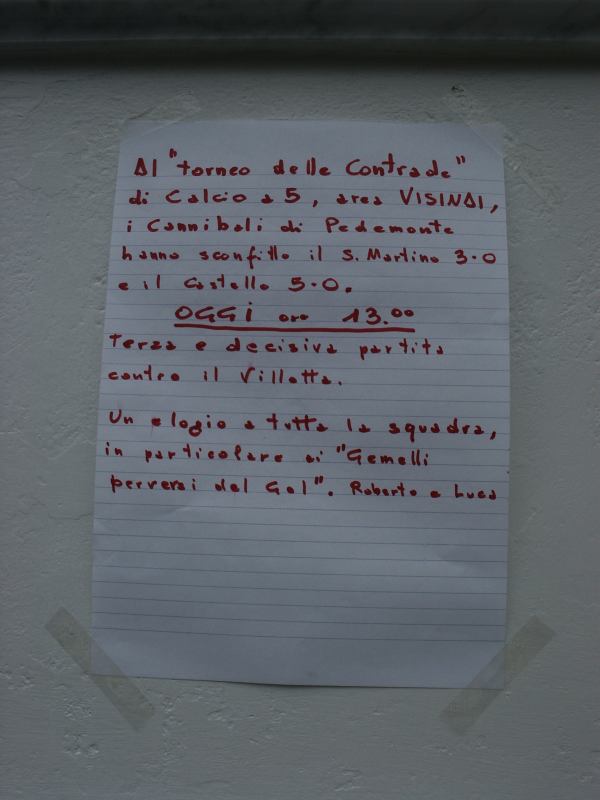 Al "torneo delle Contrade"
di Calcio a 5, area VISINAI,
i Cannibali di Pedemonte
hanno sconfitto il S. Martino 3-0
e il Castello 5-0.
OGGI ore 13.00
Terza e decisiva partita
contro il Villotta.
Un elogio a tutta la squadra,
in particolare ai "Gemelli
perversi del Gol". Roberto e Luca